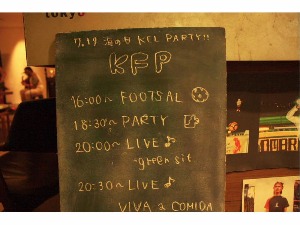 tokyo
7.19 海の日 KFL PARTY!!
KFP
16:00~ FOOTSAL
18:30~ PARTY
20:00~ LIVE♪
green sit
20:30~ LIVE♪
VIVA a COMIDA